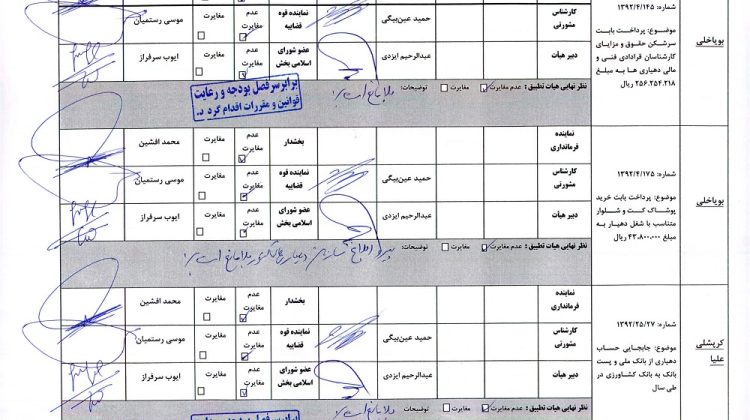 بویاخلی
شماره: ۱۳۹۲/۴/۱۴۵
موضوع: پرداخت بابت
سرشکن حقوق و مزایای
کارشناسان قرادادی فنی و
مالی دهیاری ها به مبلغ
۲۵۶.۲۵۴.۳۱۸ ریال
کارشناس مشورتی
حمید عین‌بیگی
نماینده قوه قضاییه
عدم مغایرت
مغایرت
موسی رستمیان
دبیر هیأت
عبدالرحیم ایزدی
عضو شورای اسلامی بخش
عدم مغایرت
مغایرت
ایوب سرفراز
نظر نهایی هیات تطبیق : عدم مغایرت مغایرت توضیحات: بلامانع است
برابر سرفصل بودجه و رعایت
قوانین و مقررات اقدام گردد.
بویاخلی
شماره: ۱۳۹۲/۴/۱۷۵
موضوع: پرداخت بابت خرید
پوشاک کت و شلوار
متناسب با شغل دهیار به
مبلغ ۴۳.۸۰۰.۰۰۰ ریال
نماینده فرمانداری
بخشدار
عدم مغایرت
مغایرت
محمد افشین
کارشناس مشورتی
حمید عین‌بیگی
نماینده قوه قضاییه
عدم مغایرت
مغایرت
موسی رستمیان
دبیر هیأت
عبدالرحیم ایزدی
عضو شورای اسلامی بخش
عدم مغایرت
مغایرت
ایوب سرفراز
نظر نهایی هیات تطبیق : عدم مغایرت مغایرت توضیحات: بلامانع است
کرپشلی علیا
شماره: ۱۳۹۲/۲۵/۲۷
موضوع: جابجایی حساب
دهیاری از بانک ملی و پست
بانک به بانک کشاورزی در
طی سال
نماینده فرمانداری
بخشدار
عدم مغایرت
مغایرت
محمد افشین
کارشناس مشورتی
حمید عین‌بیگی
نماینده قوه قضاییه
عدم مغایرت
مغایرت
موسی رستمیان
دبیر هیأت
عبدالرحیم ایزدی
عضو شورای اسلامی بخش
عدم مغایرت
مغایرت
ایوب سرفراز
نظر نهایی هیات تطبیق : عدم مغایرت مغایرت توضیحات: بلامانع است